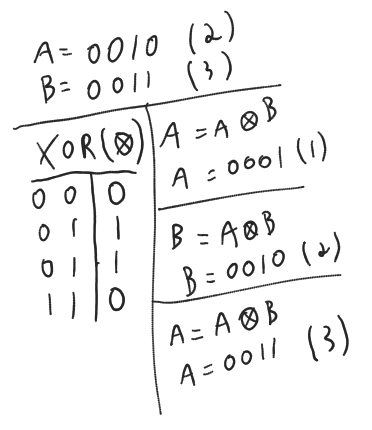 A = 0010 (2)
B = 0011 (3)
XOR(⊗)
0 0 0
0 1 1
0 1 1
1 1 0
A = A ⊗ B
A = 0001 (1)
B = A ⊗ B
B = 0010 (2)
A = A ⊗ B
A = 0011 (3)